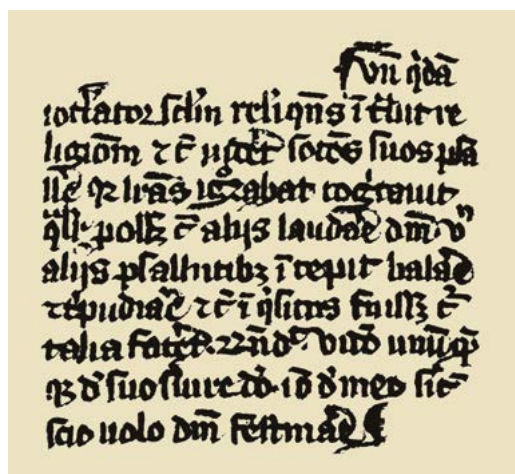 Vn̄ q̇dā
ioc̄lator sc̄l'm relīqns ī t̄uit re
ligiōm ⁊ c̄ socios suos psa
ll'e q̄ lr̄as ig̊rabat cog̍tauit
ql'r poss; c̄ alijs laudāe dm̄. vn̄
alijs psalln̄tib; īcepit balāe
⁊ t̍pudiāe ⁊ c̄ īq̍situs fuiss; c̄
talia fac̄et. Rn̄d' vido unūq̄
q; d' suo s'uire dō. iō d' meo sic̄
scio uolo dm̄ festinaē